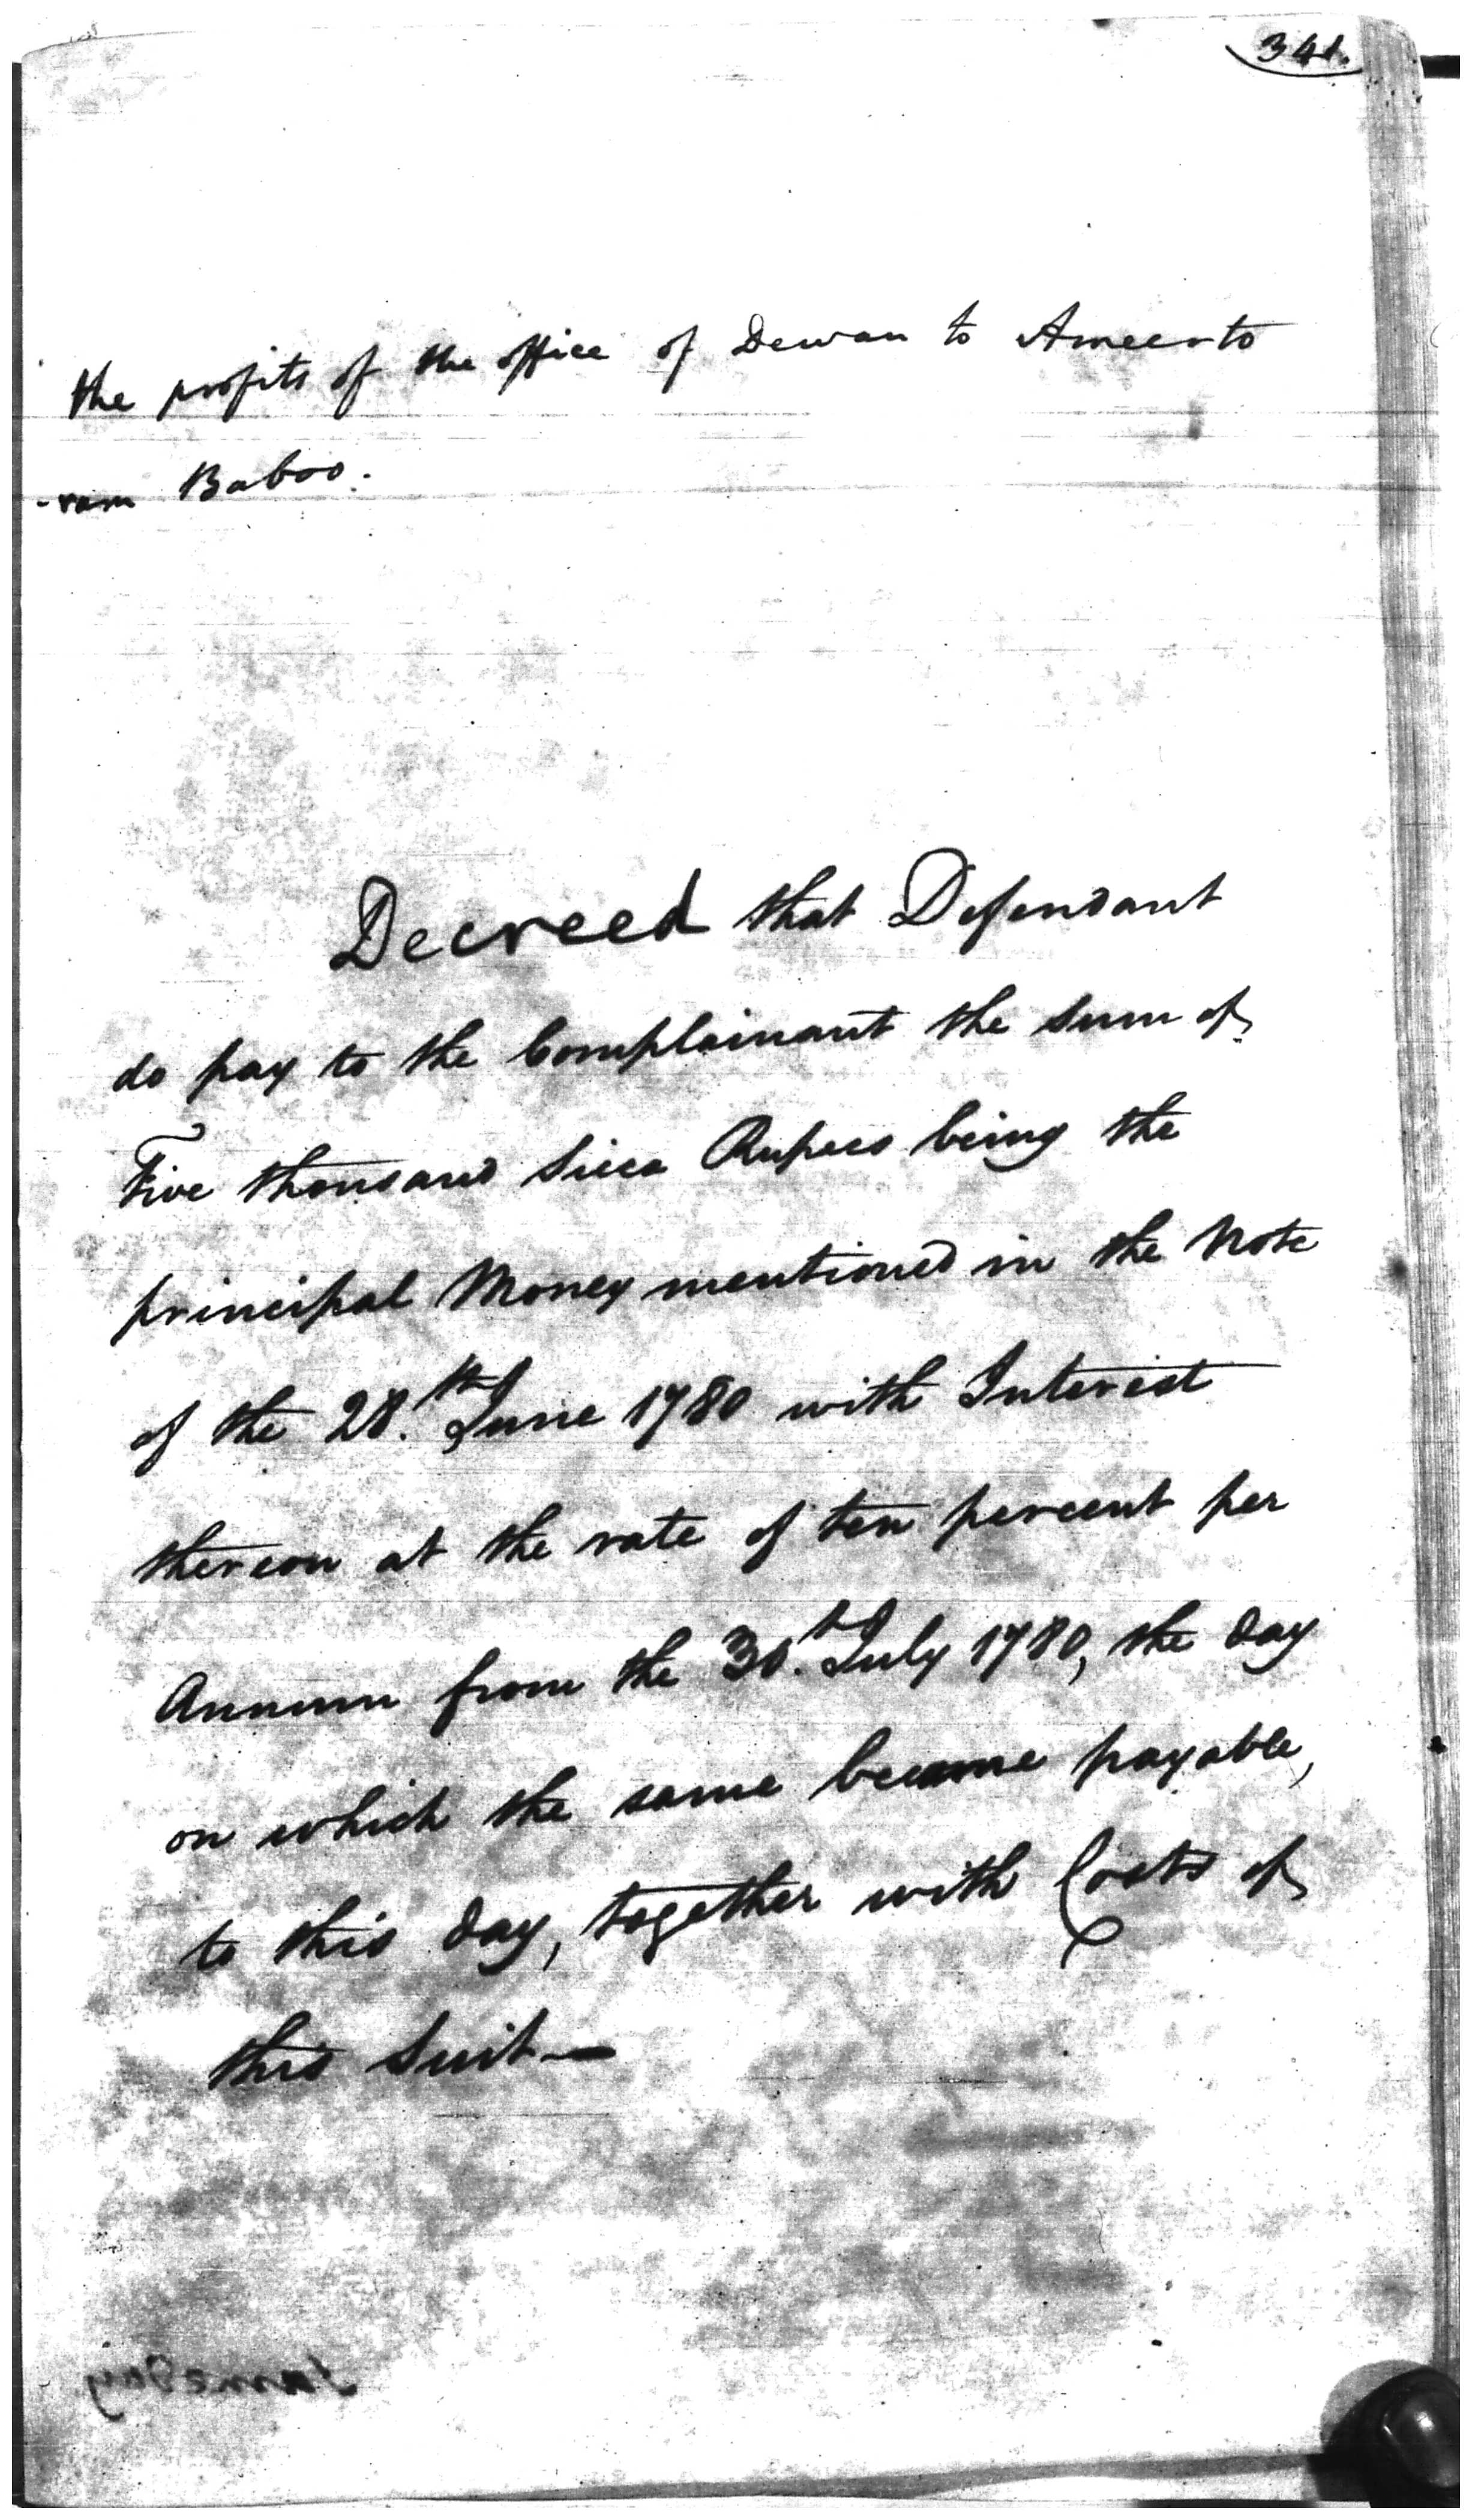 341.
the profits of the office of Dewan to Ameerto
-ram Baboo.
Decreed that Defendant
do pay to the Complainant the Sum of
Five thousand Sicca Rupees being the
principal Money mentioned in the Note
of the 28.th June 1780 with Interest
thereon at the rate of ten percent per
Annum from the 30.th July 1780, the day
on which the same became payable,
to this day, together with Costs of
this Suit —
Same Day